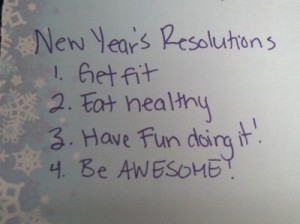 New Year's Resolutions
1. Get fit
2. Eat healthy
3. Have Fun doing it!
4. Be AWESOME!